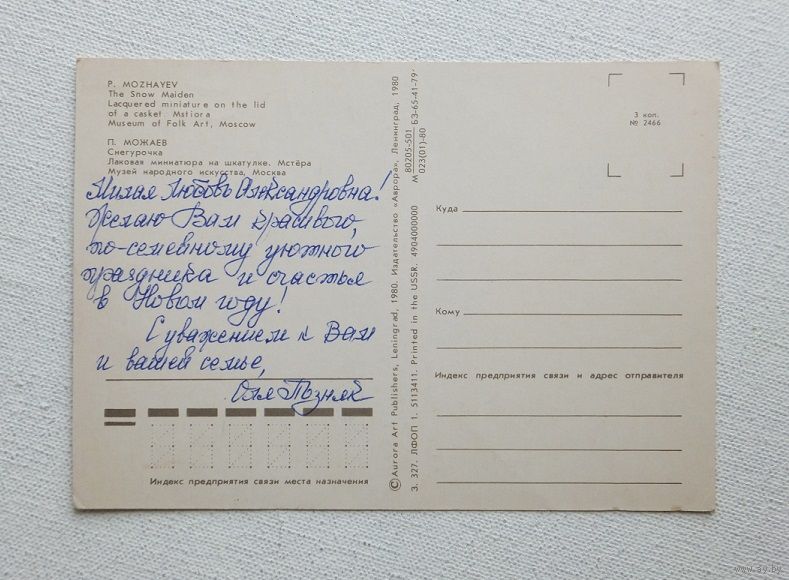 P. MOZHAYEV
The Snow Maiden
Lacquered miniature on the lid
of a casket. Mstiora
Museum of Folk Art, Moscow
П. МОЖАЕВ
Снегурочка
Лаковая миниатюра на шкатулке. Мстёра
Музей народного искусства, Москва
Милая Любовь Александровна!
Желаю Вам красивого,
по-семейному уютного
праздника и счастья
в Новом году!
С уважением к Вам
и вашей семье,
Оля Позняк
Индекс предприятия связи места назначения
© Aurora Art Publishers, Leningrad, 1980. Издательство «Аврора», Ленинград, 1980
З. 327. ЛФОП 1. 5113411. Printed in the USSR. 4904000000
80205-501 БЗ-65-41-79
М 023(01)-80
3 коп.
№ 2466
Куда
Кому
Индекс предприятия связи и адрес отправителя
www.ay.by